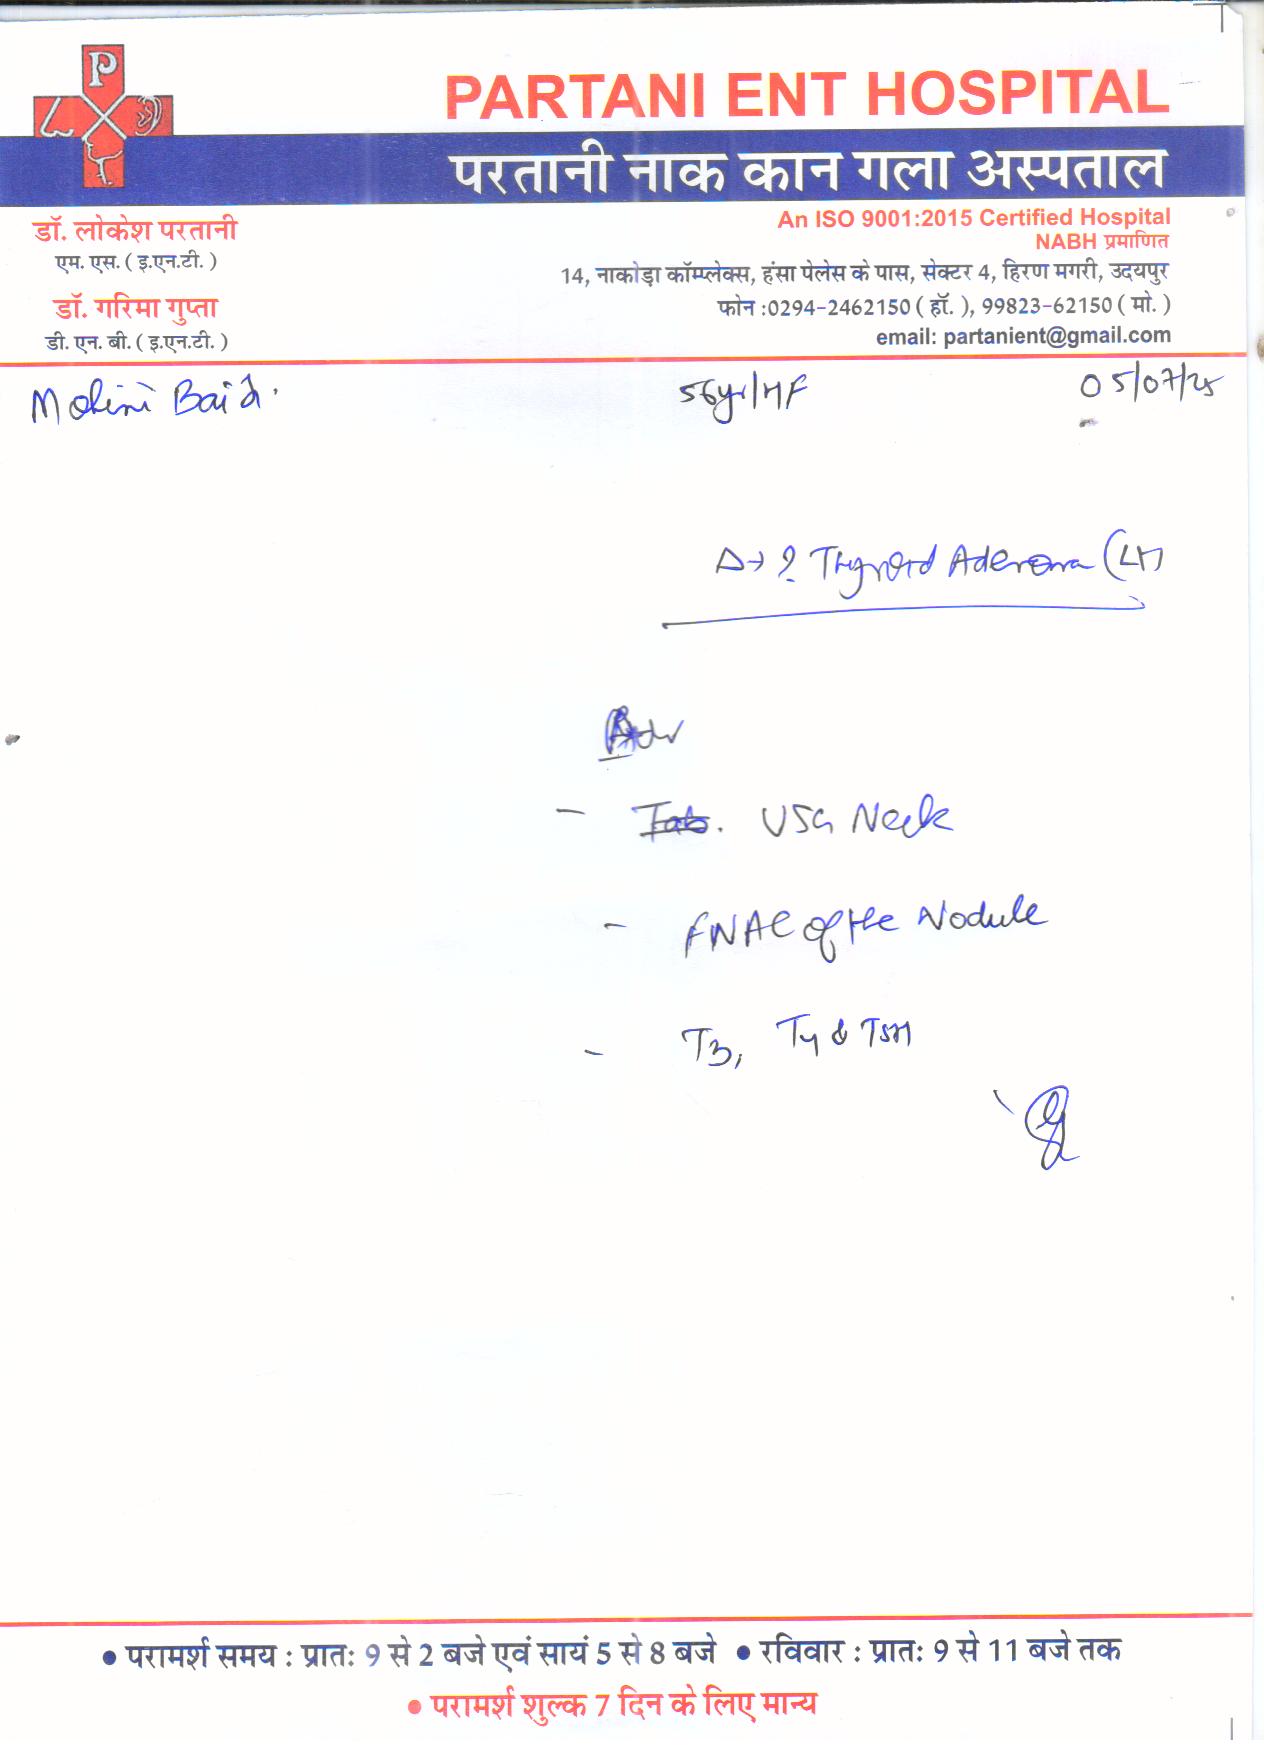 P
PARTANI ENT HOSPITAL
परतानी नाक कान गला अस्पताल
डॉ. लोकेश परतानी
एम. एस. ( इ.एन.टी. )
डॉ. गरिमा गुप्ता
डी. एन. बी. ( इ.एन.टी. )
An ISO 9001:2015 Certified Hospital
NABH प्रमाणित
14, नाकोड़ा कॉम्प्लेक्स, हंसा पेलेस के पास, सेक्टर 4, हिरण मगरी, उदयपुर
फोन :0294-2462150 ( हॉ. ), 99823-62150 ( मो. )
email: partanient@gmail.com
Mohini Baid. 56yr/ 05/07/25
Δ→ ? Thyroid Adenoma (Lt)
Adv
- Tab. USG Neck
- FNAC of the Nodule
- T3, T4 & TSH
• परामर्श समय : प्रातः 9 से 2 बजे एवं सायं 5 से 8 बजे • रविवार : प्रातः 9 से 11 बजे तक
• परामर्श शुल्क 7 दिन के लिए मान्य